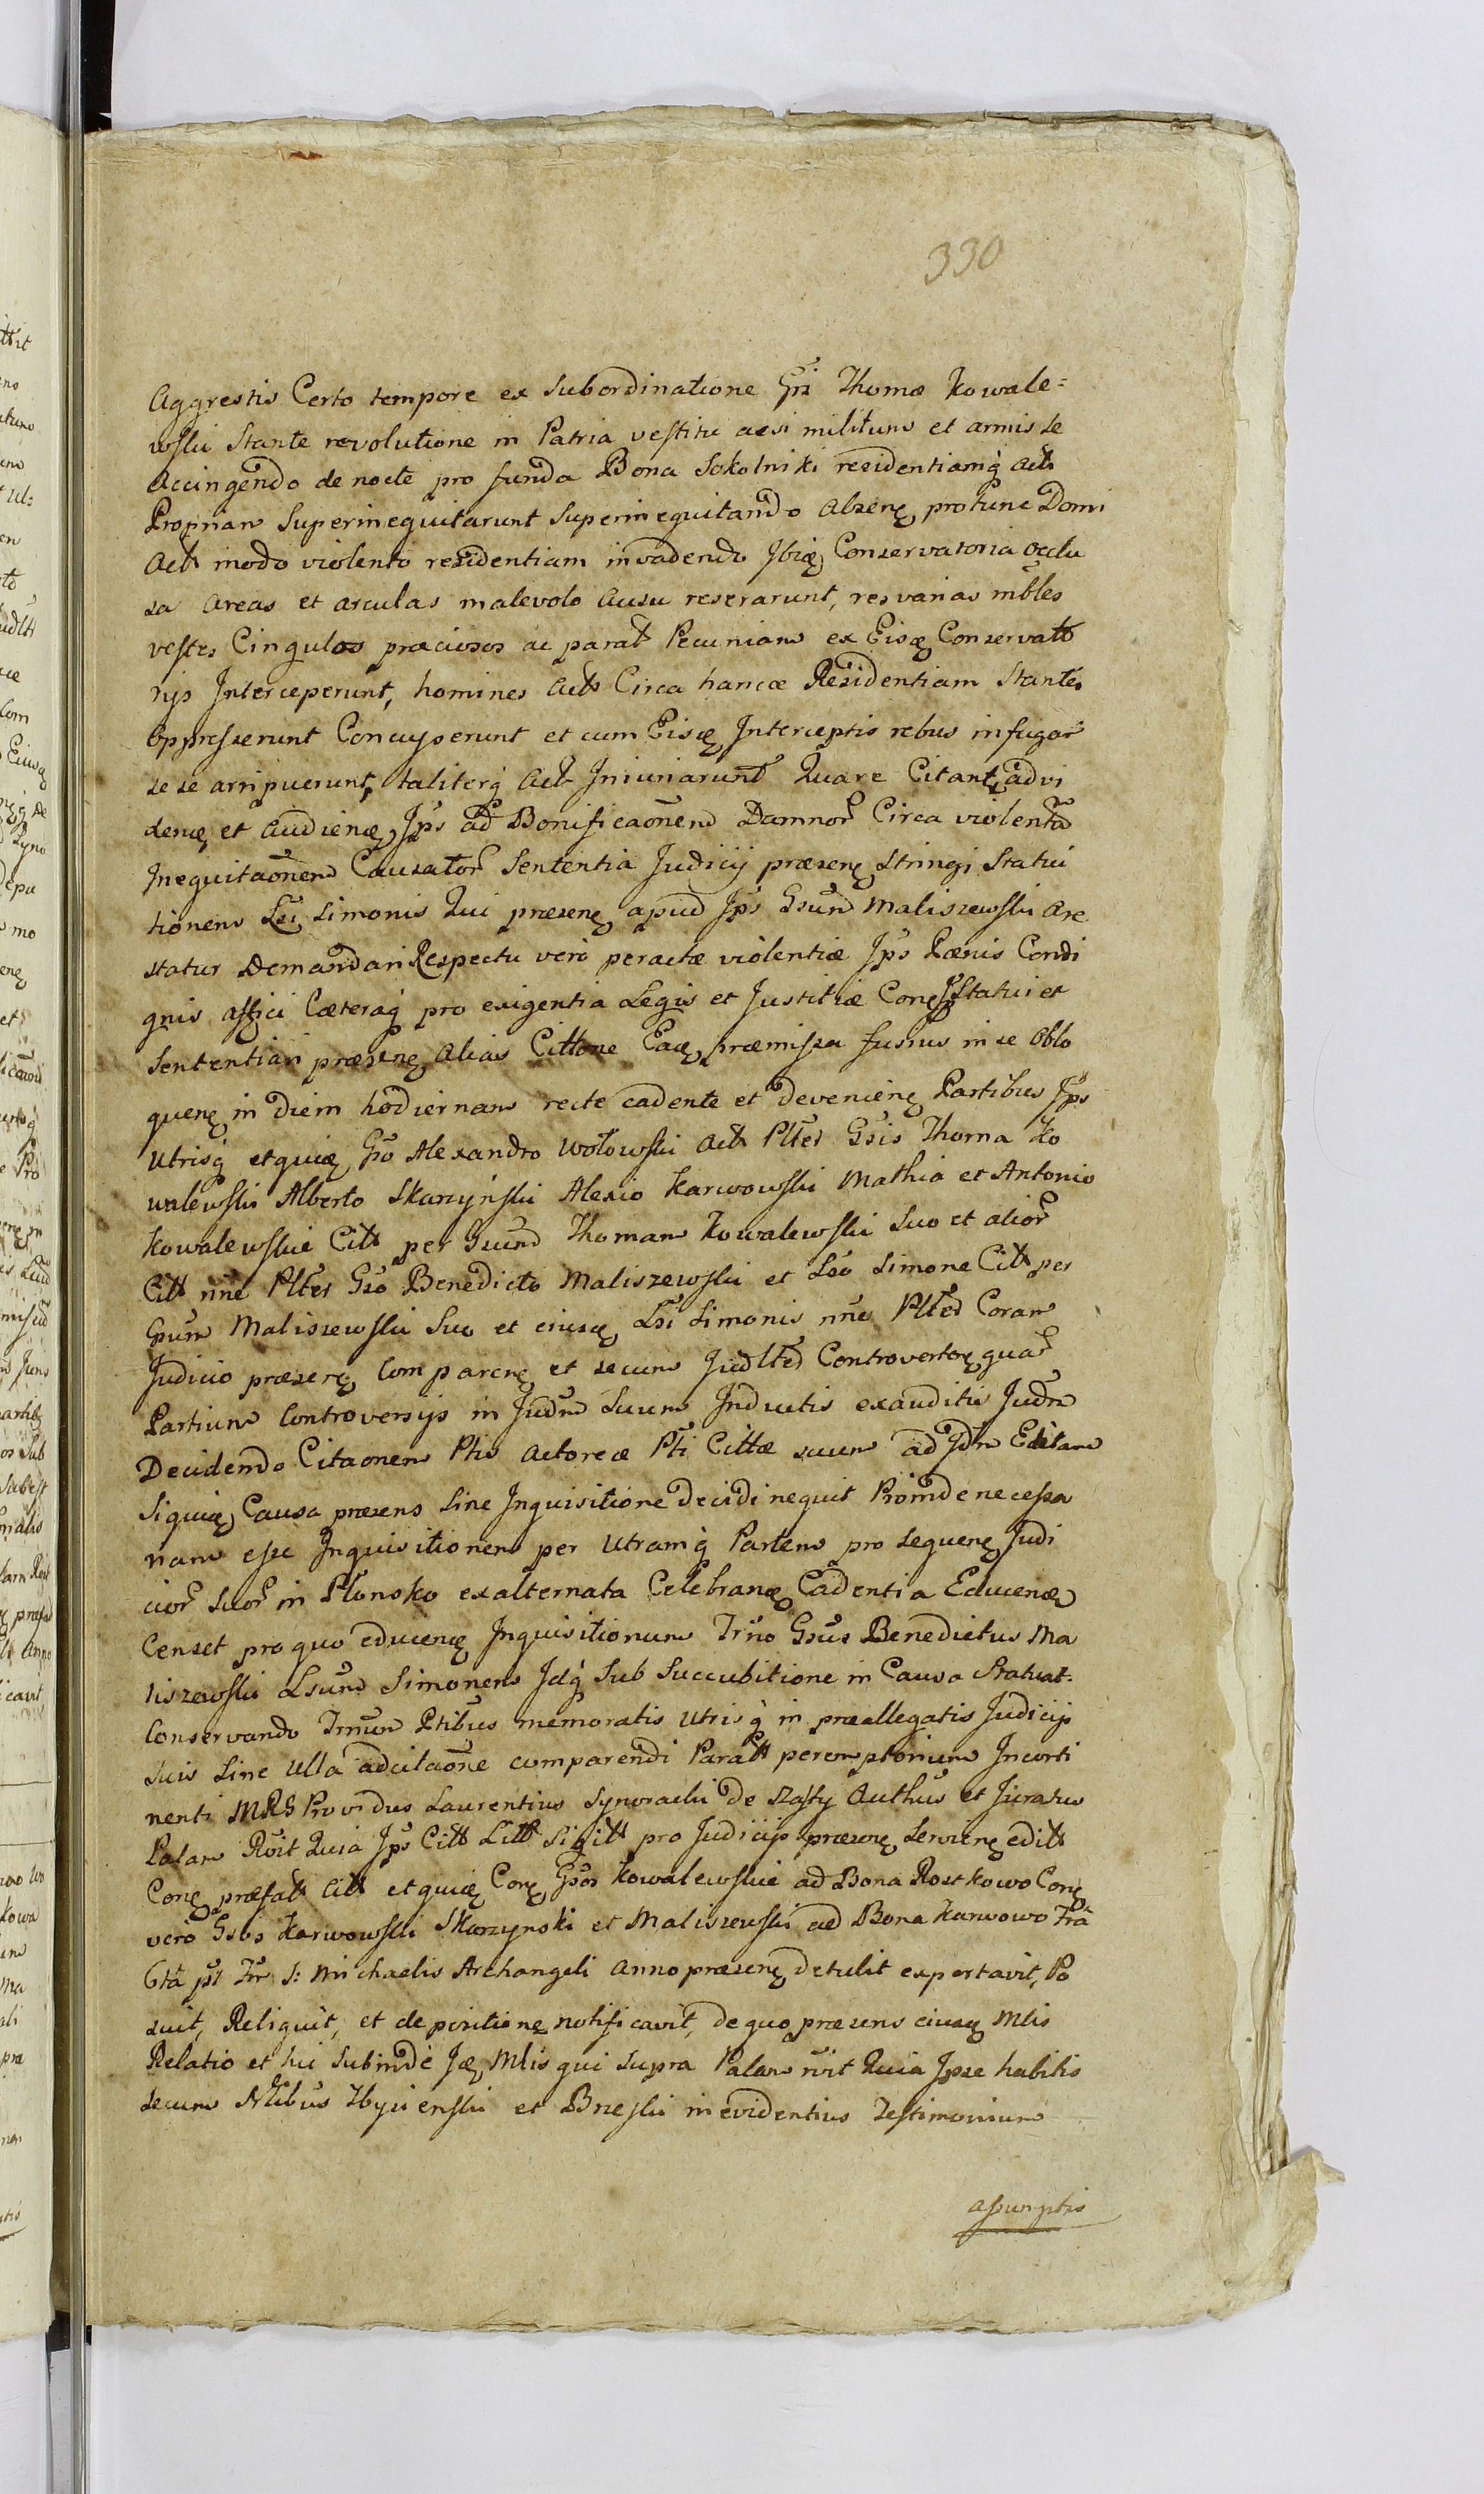 330
Aggrestis Certo tempore ex Subordinatione Gsi Thomæ Kowale=
wski Stante revolutione in Patria vestitu acsi militum et armis se
Accingendo de nocte pro funda Bona Sokolniki residentiamq Act
Propriam Superinequitarunt Superinequitando Absenę protunc Domi
Act modo violento residentiam invadendo Ibię Conservatoria Occlu
sa Arcas et arculas malevolo Ausu reserarunt, res varias mbles
vestes Cingulos præciosos ac parat Pecuniam ex Eisę Conservato
rijs Interceperunt, homines Act Circa hancce Residentiam Stantes
Oppresserunt Concusserunt et cum Eisę Interceptis rebus in fugar
se se arripuerunt, taliterq Act Iniuriarunt Quare Citantę ad vi
denę et Audienę Ips ad Bonificaonem Damnor Circa violenta
Inequitaonem Causator Sententia Judicij præsenę Stringi Statui
tionem Lsi Simonis Qui præsenę apud Ips Gsum Maliszewski Are
statur Demandari Respectu vero peractæ violentiæ Ips Pænis Condi
gnis affici Cæteraq pro exigentia Legis et Justitiæ Conę Ips Statui et
Sententiari præsenę alias Cittone Eaę præmissa fusius in se Oblo
quenę in diem hodiernam recte cadente et devenienę Partibus Ips
Utrisq etquię Gso Alexandro Wołowski Act Pltes Gsis Thoma Ko
walewski Alberto Skarzyński Alexio Karwowski Mathia et Antonio
Kowalewskie Citt per Gsum Thomam Kowalewski Suo et alior
Citt nne Pltes Gso Benedicto Maliszewski et Lso Simone Citt per
Gsum Maliszewski Suo et eiusę Lsi Simonis nne Pltes Coram
Judicio præsenę Comparenę et secum Judltes Controvertenę quar
Partium Controversijs in Judm Suum Inductis exauditis Judm
Decidendo Citaonem Ptis Actoreæ Pti Cittæ suum ad Jdm Editam
Siquię Causa præsens Sine Inquisitione decidi nequit Proinde necessa
riam esse Inquisitionem per Utramq Partem pro sequenę Judi
cior Suor in Płonsko exalternata Celebranę Cadentia Educenę
Censet pro quo educenę Inquisitionum Trno Gsus Benedictus Ma
liszewski Lsum Simonem Idq Sub Succubitione in Causa Statuat:
Conservando Trnum Ptibus memoratis Utrisq in præallegatis Judicijs
Suis Sine Ulla adcitaone comparendi Paratt peremptorium Inconti
nenti MRS Providus Laurentius Synoracki de Szafty Authus et Juratus
Palam Rvit Quia Ips Citt Litt Sigitt pro Judicijs præsenę Servienę editt
Conę præfatt Citt etquię Conę Gsos Kowalewskie ad Bona Rostkowo Conę
vero Gsos Karwowski Skarzynski et Maliszewski ad Bona Karwowo Fra
6ta pst Fm S: Michaelis Archangeli Anno præsenę detulit exportavit, Po
suit, Reliquit, et de positione notificavit, de quo præsens eiusę Mlis
Relatio et hic Subinde Ję Mlis qui Supra Palam rvit Quia Ipse habitis
secum Nbibus Zbyienski et Brzeski in evidentius Testimonium
assumptis